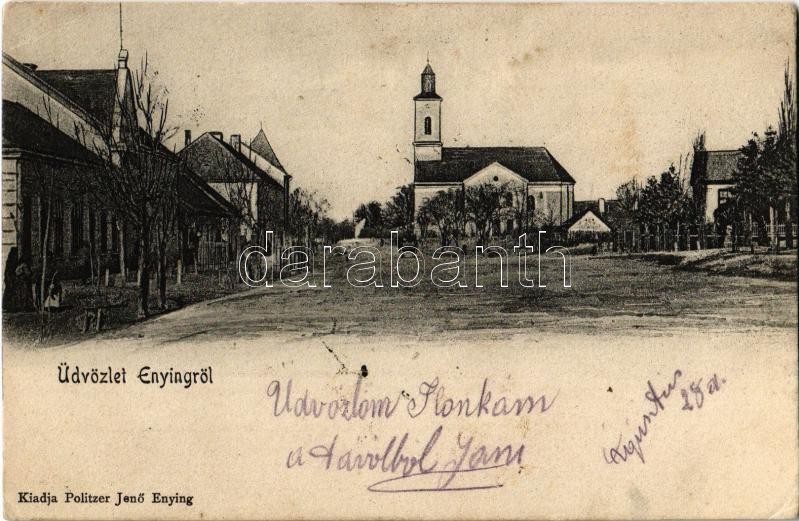 darabanth
Üdvözlet Enyingről
Üdvözlom Ilonkam
a távolból Jani
Agustus
28 d.
Kiadja Politzer Jenő Enying